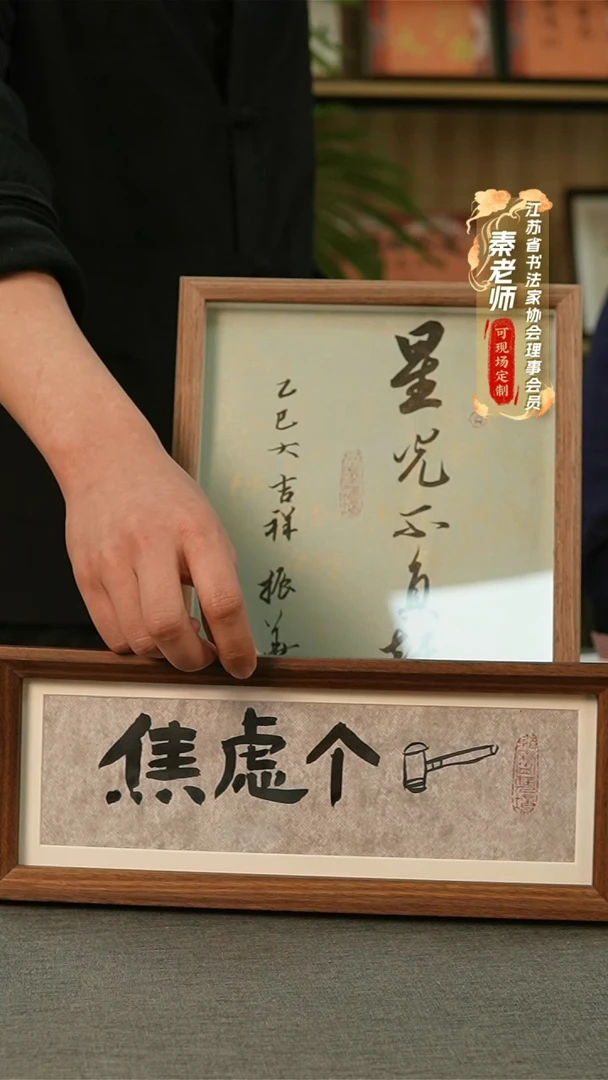 江苏省书法家协会理事会员
秦老师
可现场定制
星光不负
乙巳大吉祥 振华
焦虑个